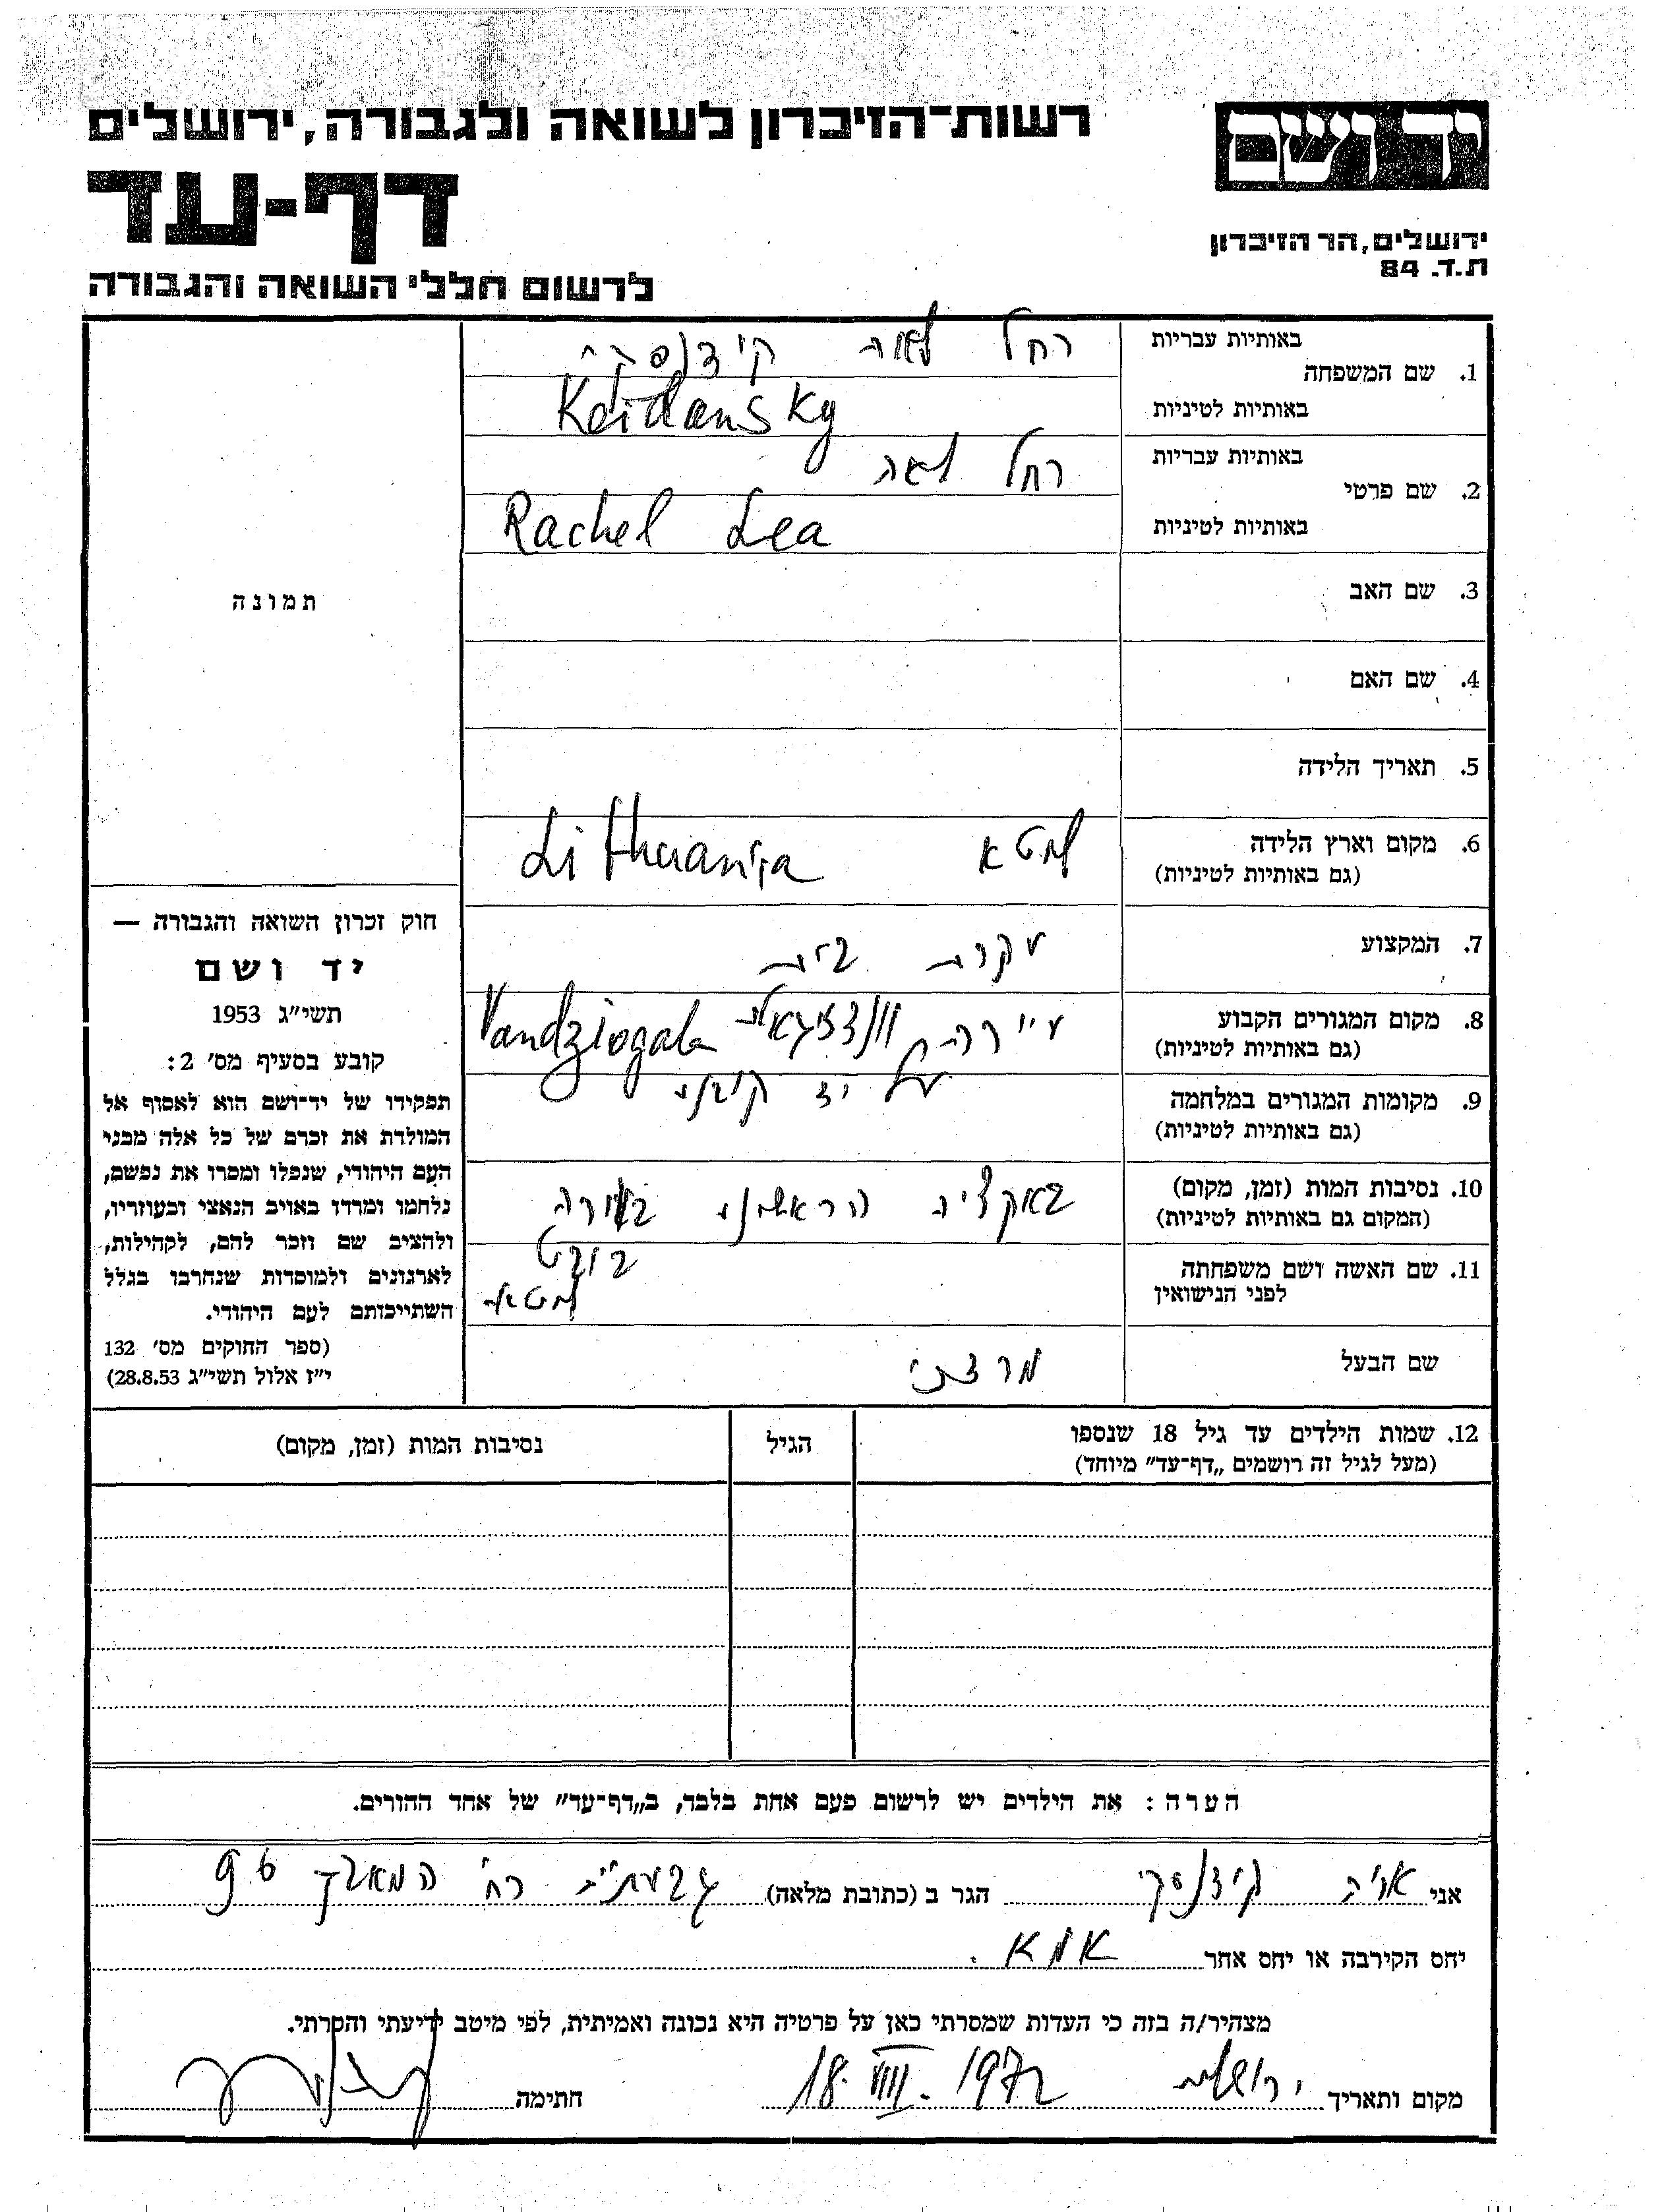 רשות־הזיכרון לשואה ולגבורה, ירושלים
יד ושם
דף-עד
ירושלים, הר הזיכרון
ת.ד. 84
לרשום חללי השואה והגבורה
באותיות עבריות
רחל לאה קידנסקי
1. שם המשפחה
באותיות לטיניות
Keidansky
באותיות עבריות
רחל לאה
2. שם פרטי
באותיות לטיניות
Rachel Lea
3. שם האב
4. שם האם
5. תאריך הלידה
6. מקום וארץ הלידה
(גם באותיות לטיניות)
ליטא Lithuania
7. המקצוע
עקרת בית
8. מקום המגורים הקבוע
(גם באותיות לטיניות)
עיירה Vandziogala
על יד קובנו
9. מקומות המגורים במלחמה
(גם באותיות לטיניות)
10. נסיבות המות (זמן, מקום)
(המקום גם באותיות לטיניות)
באקציה הראשונה
11. שם האשה ושם משפחתה
לפני הנישואין
ליטא
שם הבעל
מרדכי
תמונה
חוק זכרון השואה והגבורה —
יד ושם
תשי״ג 1953
קובע בסעיף מס׳ 2:
תפקידו של יד־ושם הוא לאסוף אל
המולדת את זכרם של כל אלה מבני
העם היהודי, שנפלו ומסרו את נפשם,
נלחמו ומרדו באויב הנאצי ובעוזריו,
ולהציב שם וזכר להם, לקהילות,
לארגונים ולמוסדות שנחרבו בגלל
השתייכותם לעם היהודי.
(ספר החוקים מס׳ 132
י״ז אלול תשי״ג 28.8.53)
12. שמות הילדים עד גיל 18 שנספו
(מעל לגיל זה רושמים „דף־עד״ מיוחד)
הגיל
נסיבות המות (זמן, מקום)
הערה: את הילדים יש לרשום פעם אחת בלבד, ב„דף־עד״ של אחד ההורים.
אני קידנסקי הגר ב (כתובת מלאה) גבעתיים רח׳
יחס הקירבה או יחס אחר אמא.
מצהיר/ה בזה כי העדות שמסרתי כאן על פרטיה היא נכונה ואמיתית, לפי מיטב ידיעתי והכרתי.
מקום ותאריך ירושלים 18.VIII.1972 חתימה